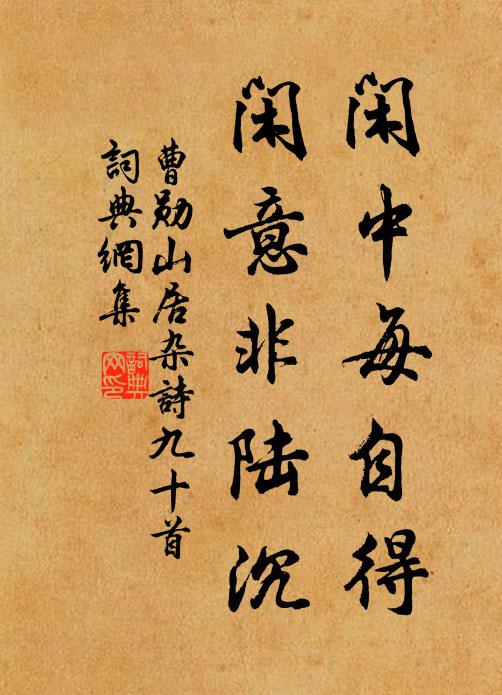 闲中每自得
闲意非陆沉
曹勋山居杂诗九十首
詞典網集
詞典網印